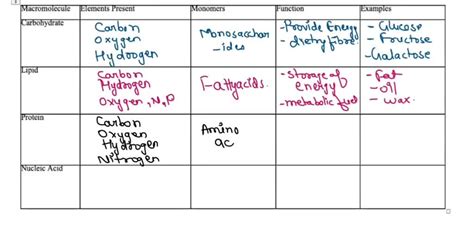 Macromolecule Elements Present Monomers Function Examples
Carbohydrate Carbon Oxygen Hydrogen Monosacchar -ides -Provide Energy - dietry fibre. - Glucose - Fructose -Galactose
Lipid Carbon Hydrogen Oxygen, N, P Fattyacids. -Storage of energy -metabolic fuel - Fat - oil - wax.
Protein Carbon Oxygen Hydrogen Nitrogen Amino ac
Nucleic Acid